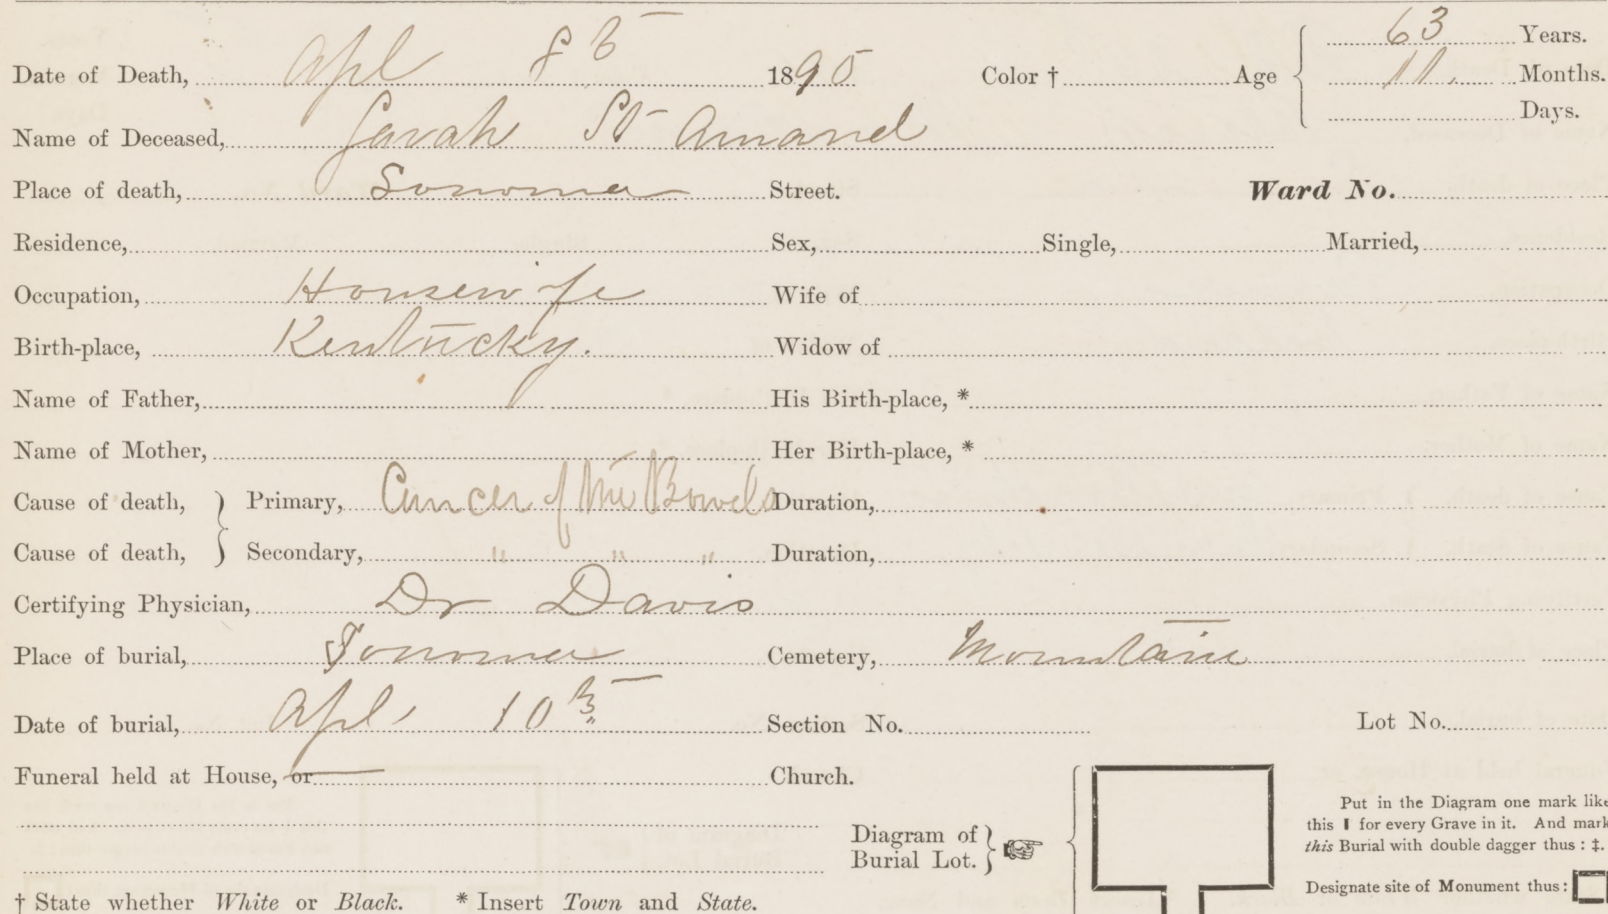 63 Years.
Date of Death, Apl 8th 1895 Color † Age 11 Months.
Days.
Name of Deceased, Sarah St Amand
Place of death, Sonoma Street. Ward No.
Residence, Sex, Single, Married,
Occupation, Housewife Wife of
Birth-place, Kentucky. Widow of
Name of Father, His Birth-place, *
Name of Mother, Her Birth-place, *
Cause of death, } Primary, Cancer of the Bowels Duration,
Cause of death, } Secondary, " " " Duration,
Certifying Physician, Dr Davis
Place of burial, Sonoma Cemetery, Mountain
Date of burial, Apl 10th Section No. Lot No.
Funeral held at House, or Church.
Diagram of Burial Lot. }
Put in the Diagram one mark like
this ▮ for every Grave in it. And mark
this Burial with double dagger thus : ‡.
Designate site of Monument thus :
† State whether White or Black. * Insert Town and State.